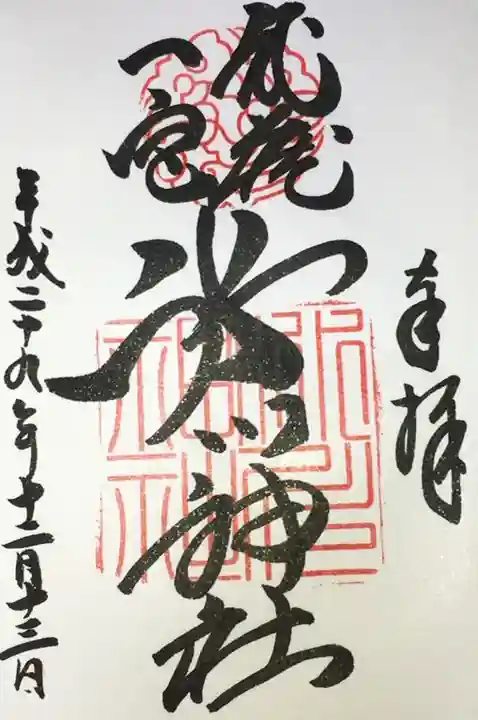 奉拝
武蔵
一宮
氷川神社
平成二十九年十二月十三日